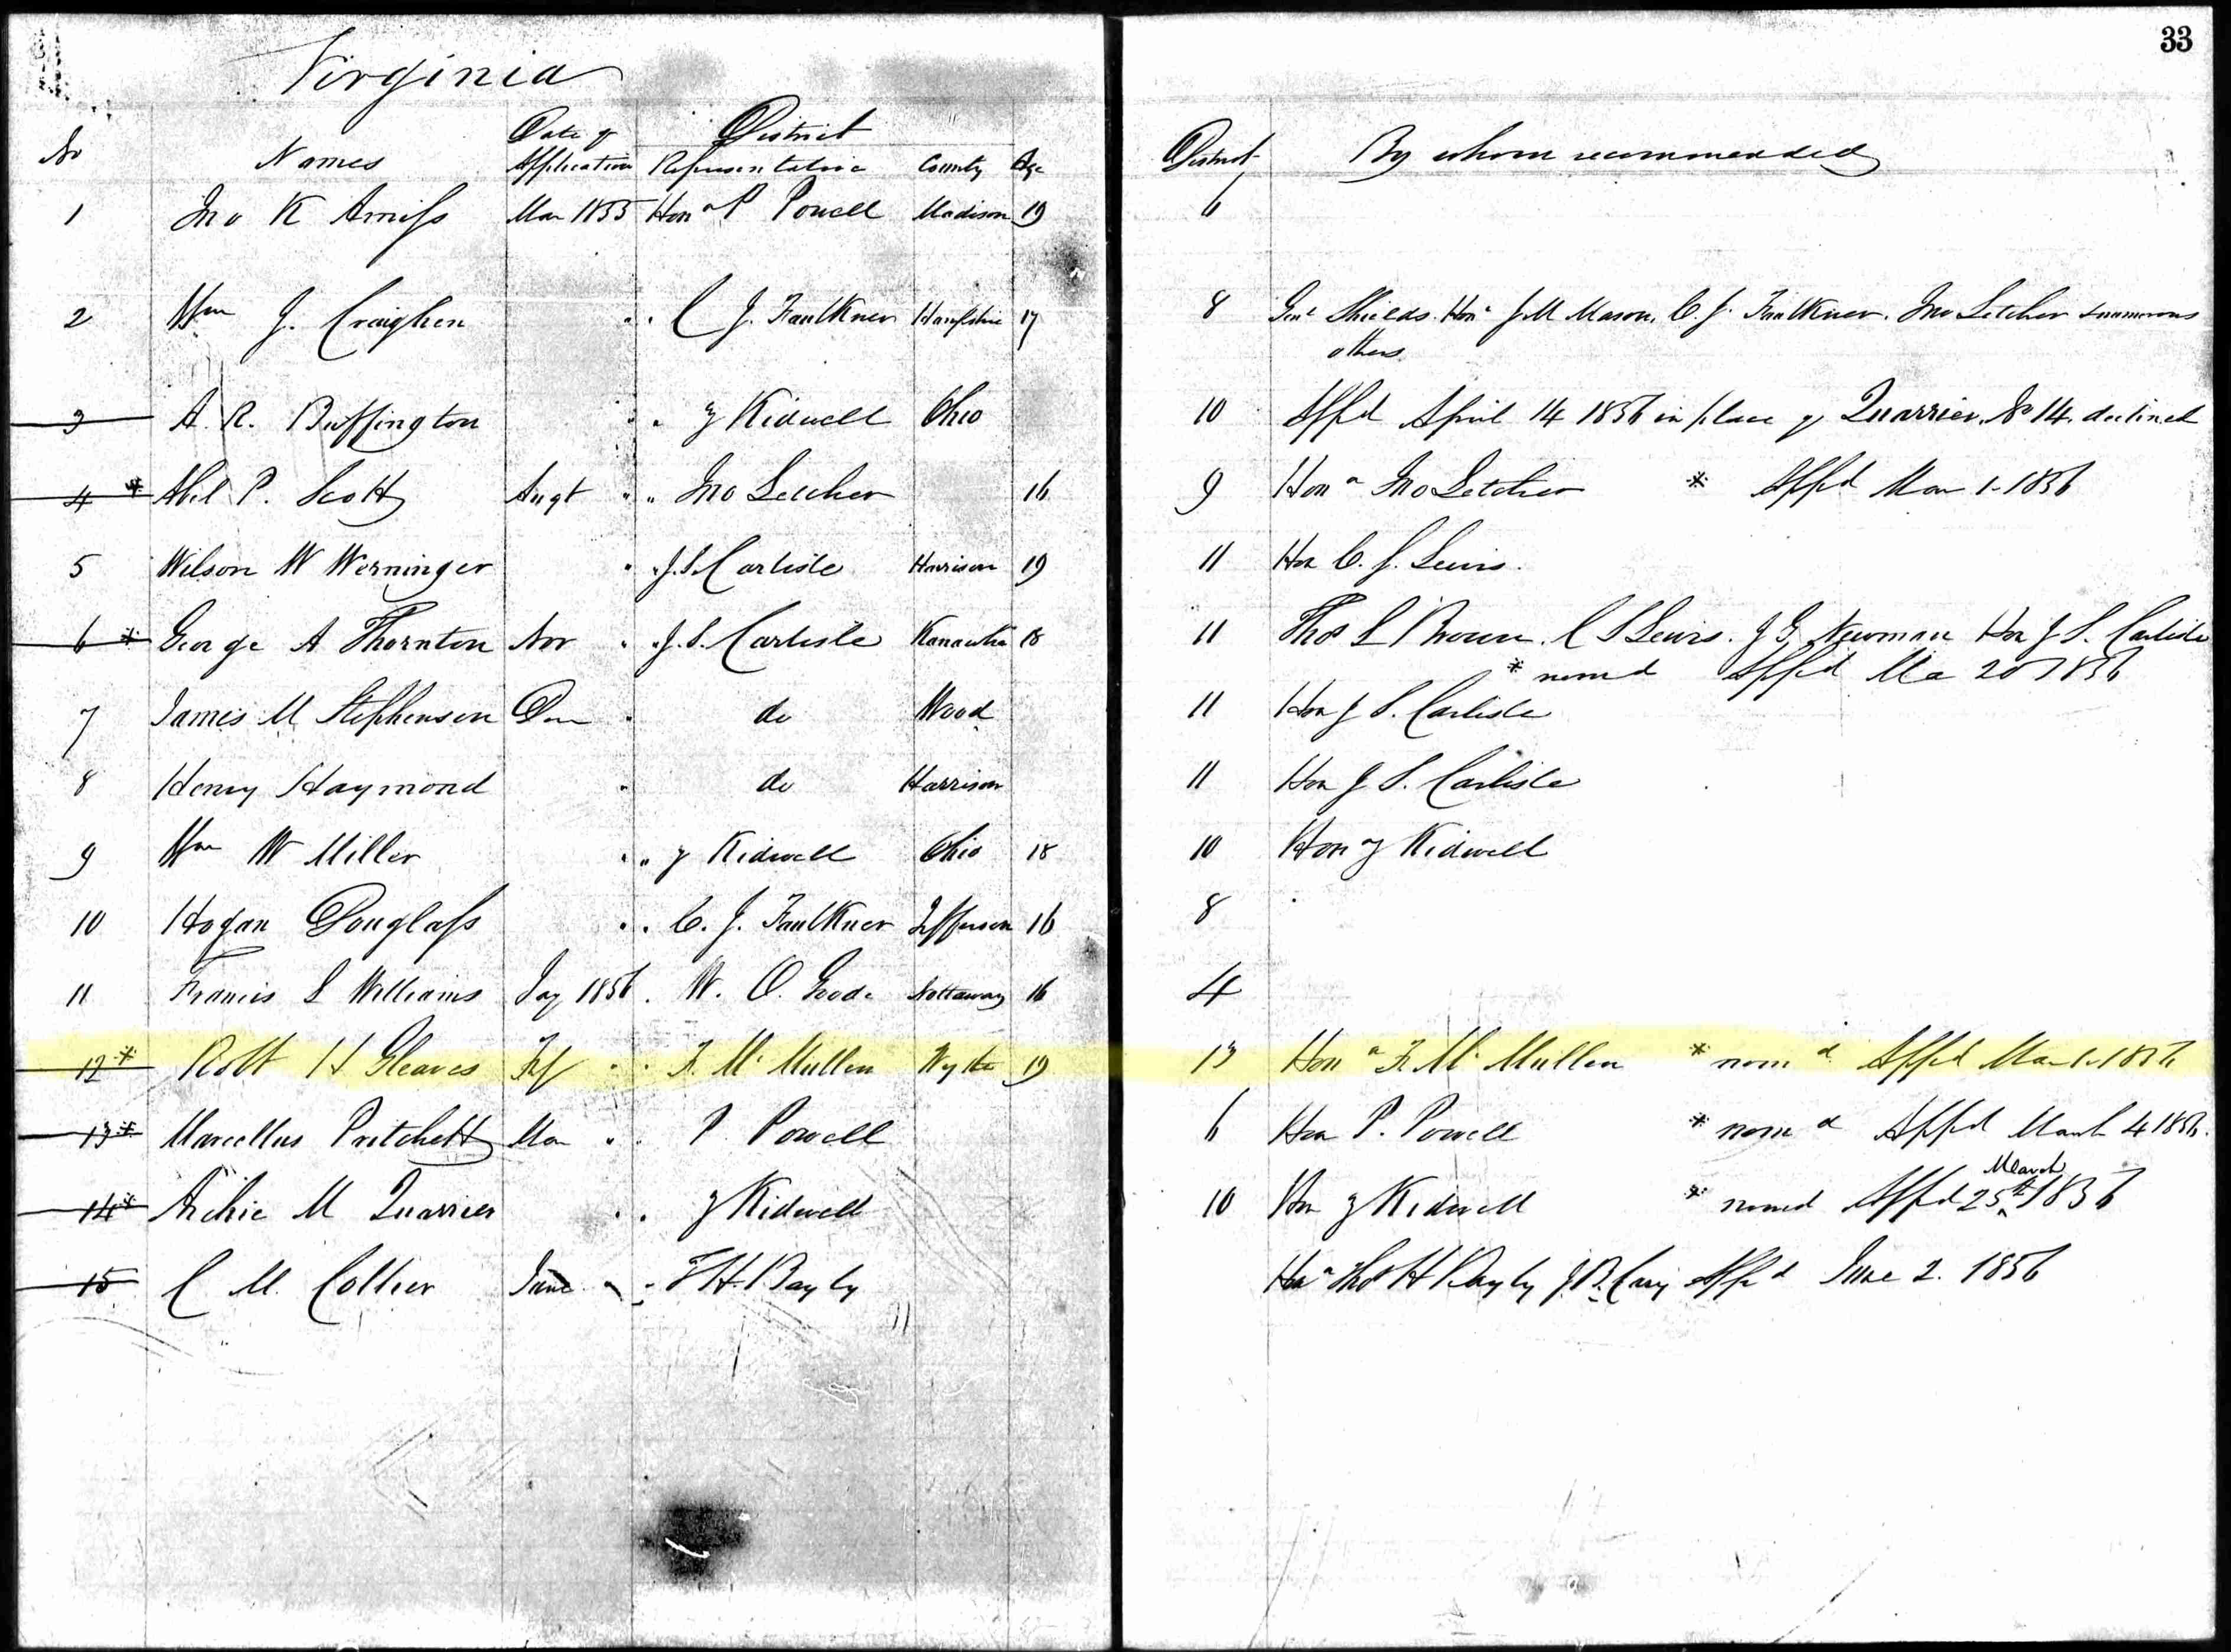 33
Virginia
No Names Date of Application District Representative County Age District By whom recommended
1 Jno K Amiss Mar 1855 Hon P Powell Madison 19 6
2 Wm J. Craighen " " C J. Faulkner Hampshire 17 8 Genl Shields. Hon J M Mason. C. J. Faulkner. Jno Letcher & numerous
others
3 A. R. Buffington " " Z Kidwell Ohio 10 Appd April 14 1856 in place of Quarrier. No 14. declined
4 * Abel P. Scott Augt " " Jno Letcher 16 9 Hon Jno Letcher * Appd Mar 1 1856
5 Wilson W Werninger " " J. S. Carlisle Harrison 19 11 Hon C. S. Lewis.
6 * George A Thornton Nov " " J. S. Carlisle Kanawha 18 11 Thos L Brown. C S Lewis. J G. Newman Hon J S. Carlisle
* nomd Appd Ma 20 1856
7 James M Stephenson " do Wood 11 Hon J S. Carlisle
8 Henry Haymond " do Harrison 11 Hon J S. Carlisle
9 Wm W Miller " " Z Kidwell Ohio 18 10 Hon Z Kidwell
10 Hogan Douglass " " C. J. Faulkner Jefferson 16 8
11 Francis S Williams Jay 1856. W. O. Goode Nottaway 16 4
12 * Robt H Gleaves Feb " " F. McMullen Wythe 19 13 Hon F. McMullen * nomd Appd Mar 1 1856
13 * Marcellus Pritchett Mar " " P Powell 6 Hon P. Powell * nomd Appd March 4 1856.
14 * Archie M Quarrier " " Z Kidwell 10 Hon Z Kidwell * nomd Appd March 25th 1856
15 C M. Collier June " " T H. Bayly Hon Thos H Bayly J. B. Cary Appd June 2. 1856
11